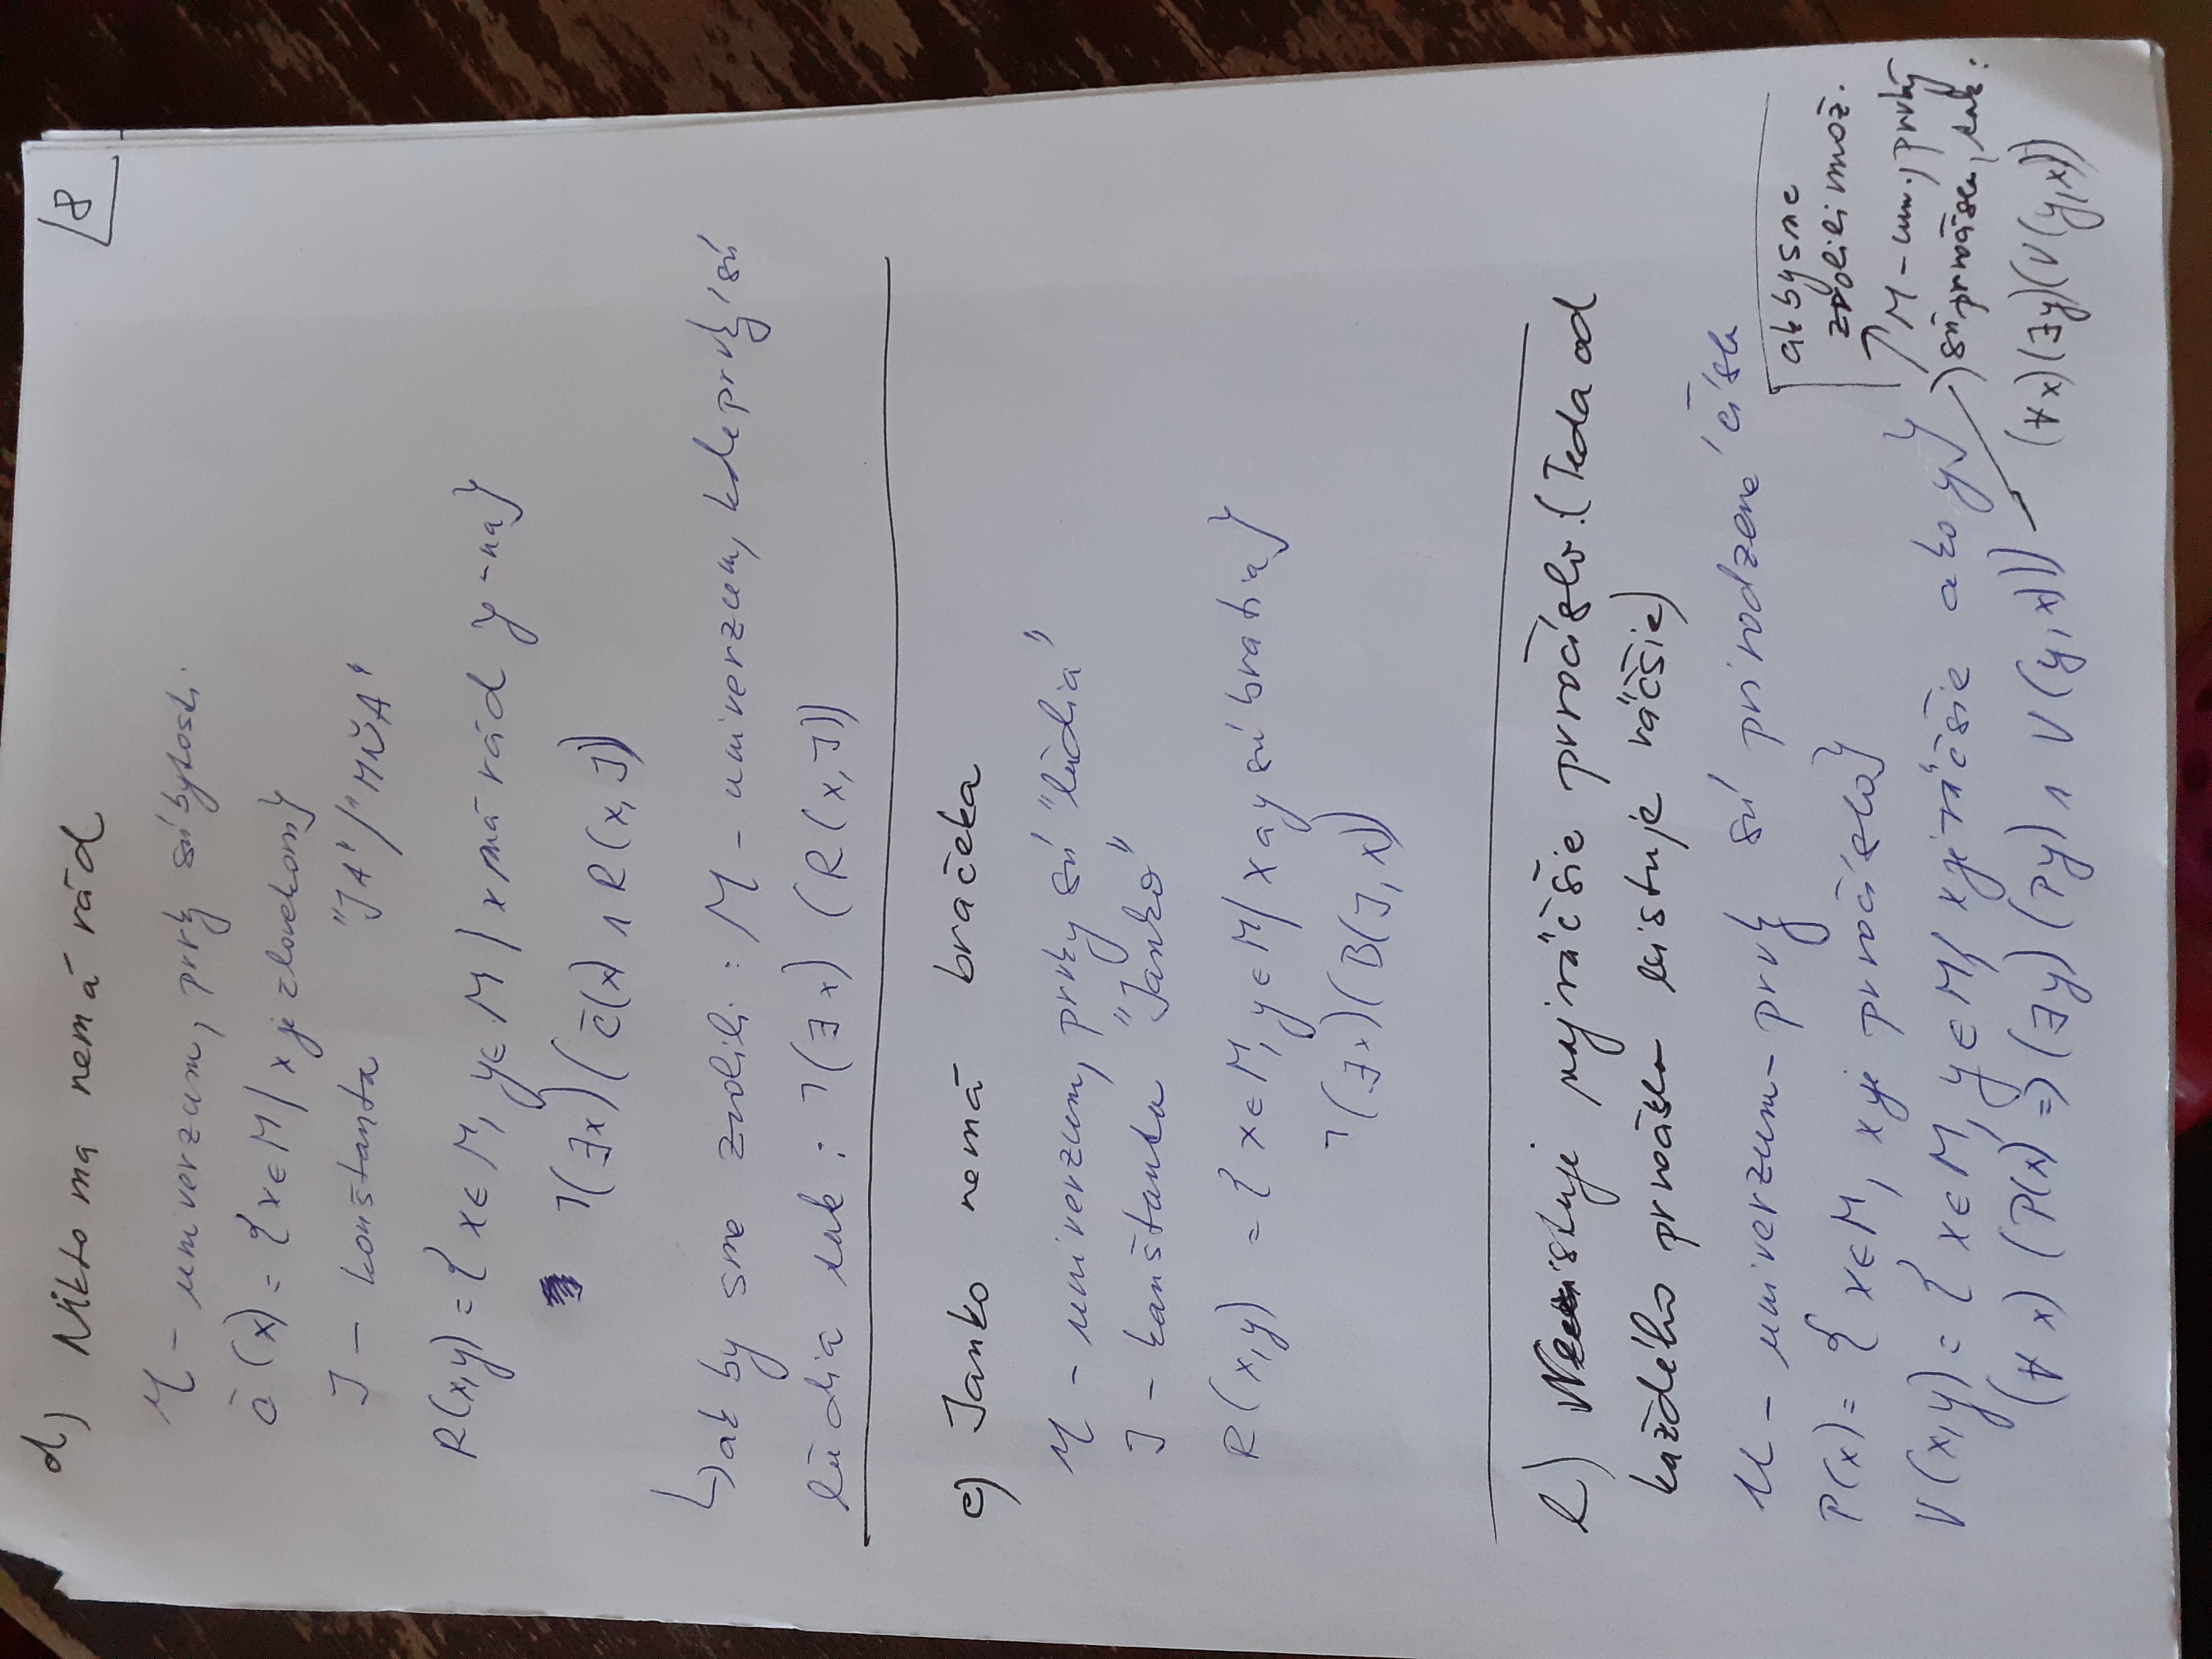 18
d) Nikto ma nemá rád
M - univerzum, prvky sú bytosti.
č(x) = {x∈M | x je človekom}
J - konštanta "JA"/"MŇA"
R(x,y) = {x∈M, y∈M | x má rád y-na}
⌐(∃x)(č(x) ∧ R(x,J))
↳ ak by sme zvolili: M - univerzum, kde prvky sú
ľudia tak: ⌐(∃x)(R(x,J))
e) Janko nemá bračeka
M - univerzum, prvky sú "ľudia"
J - konštanta "Janko"
R(x,y) = {x∈M, y∈M | x a y sú bratia}
⌐(∃x)(B(J,x))
l) Neexistuje najväčšie prvočíslo. (Teda od
každého prvočísla existuje väčšie)
M - univerzum - prvky sú prirodzené čísla
P(x) = {x∈M, x je prvočíslo}
V(x,y) = {x∈M, y∈M | x je väčšie ako y}
(∀x)(P(x) ⇒ (∃y)(P(y) ∧ V(y,x)))
ak by sme
zvolili množ.
M - univ., prvky
sú prvočísla, tak:
(∀x)(∃y)(V(y,x))